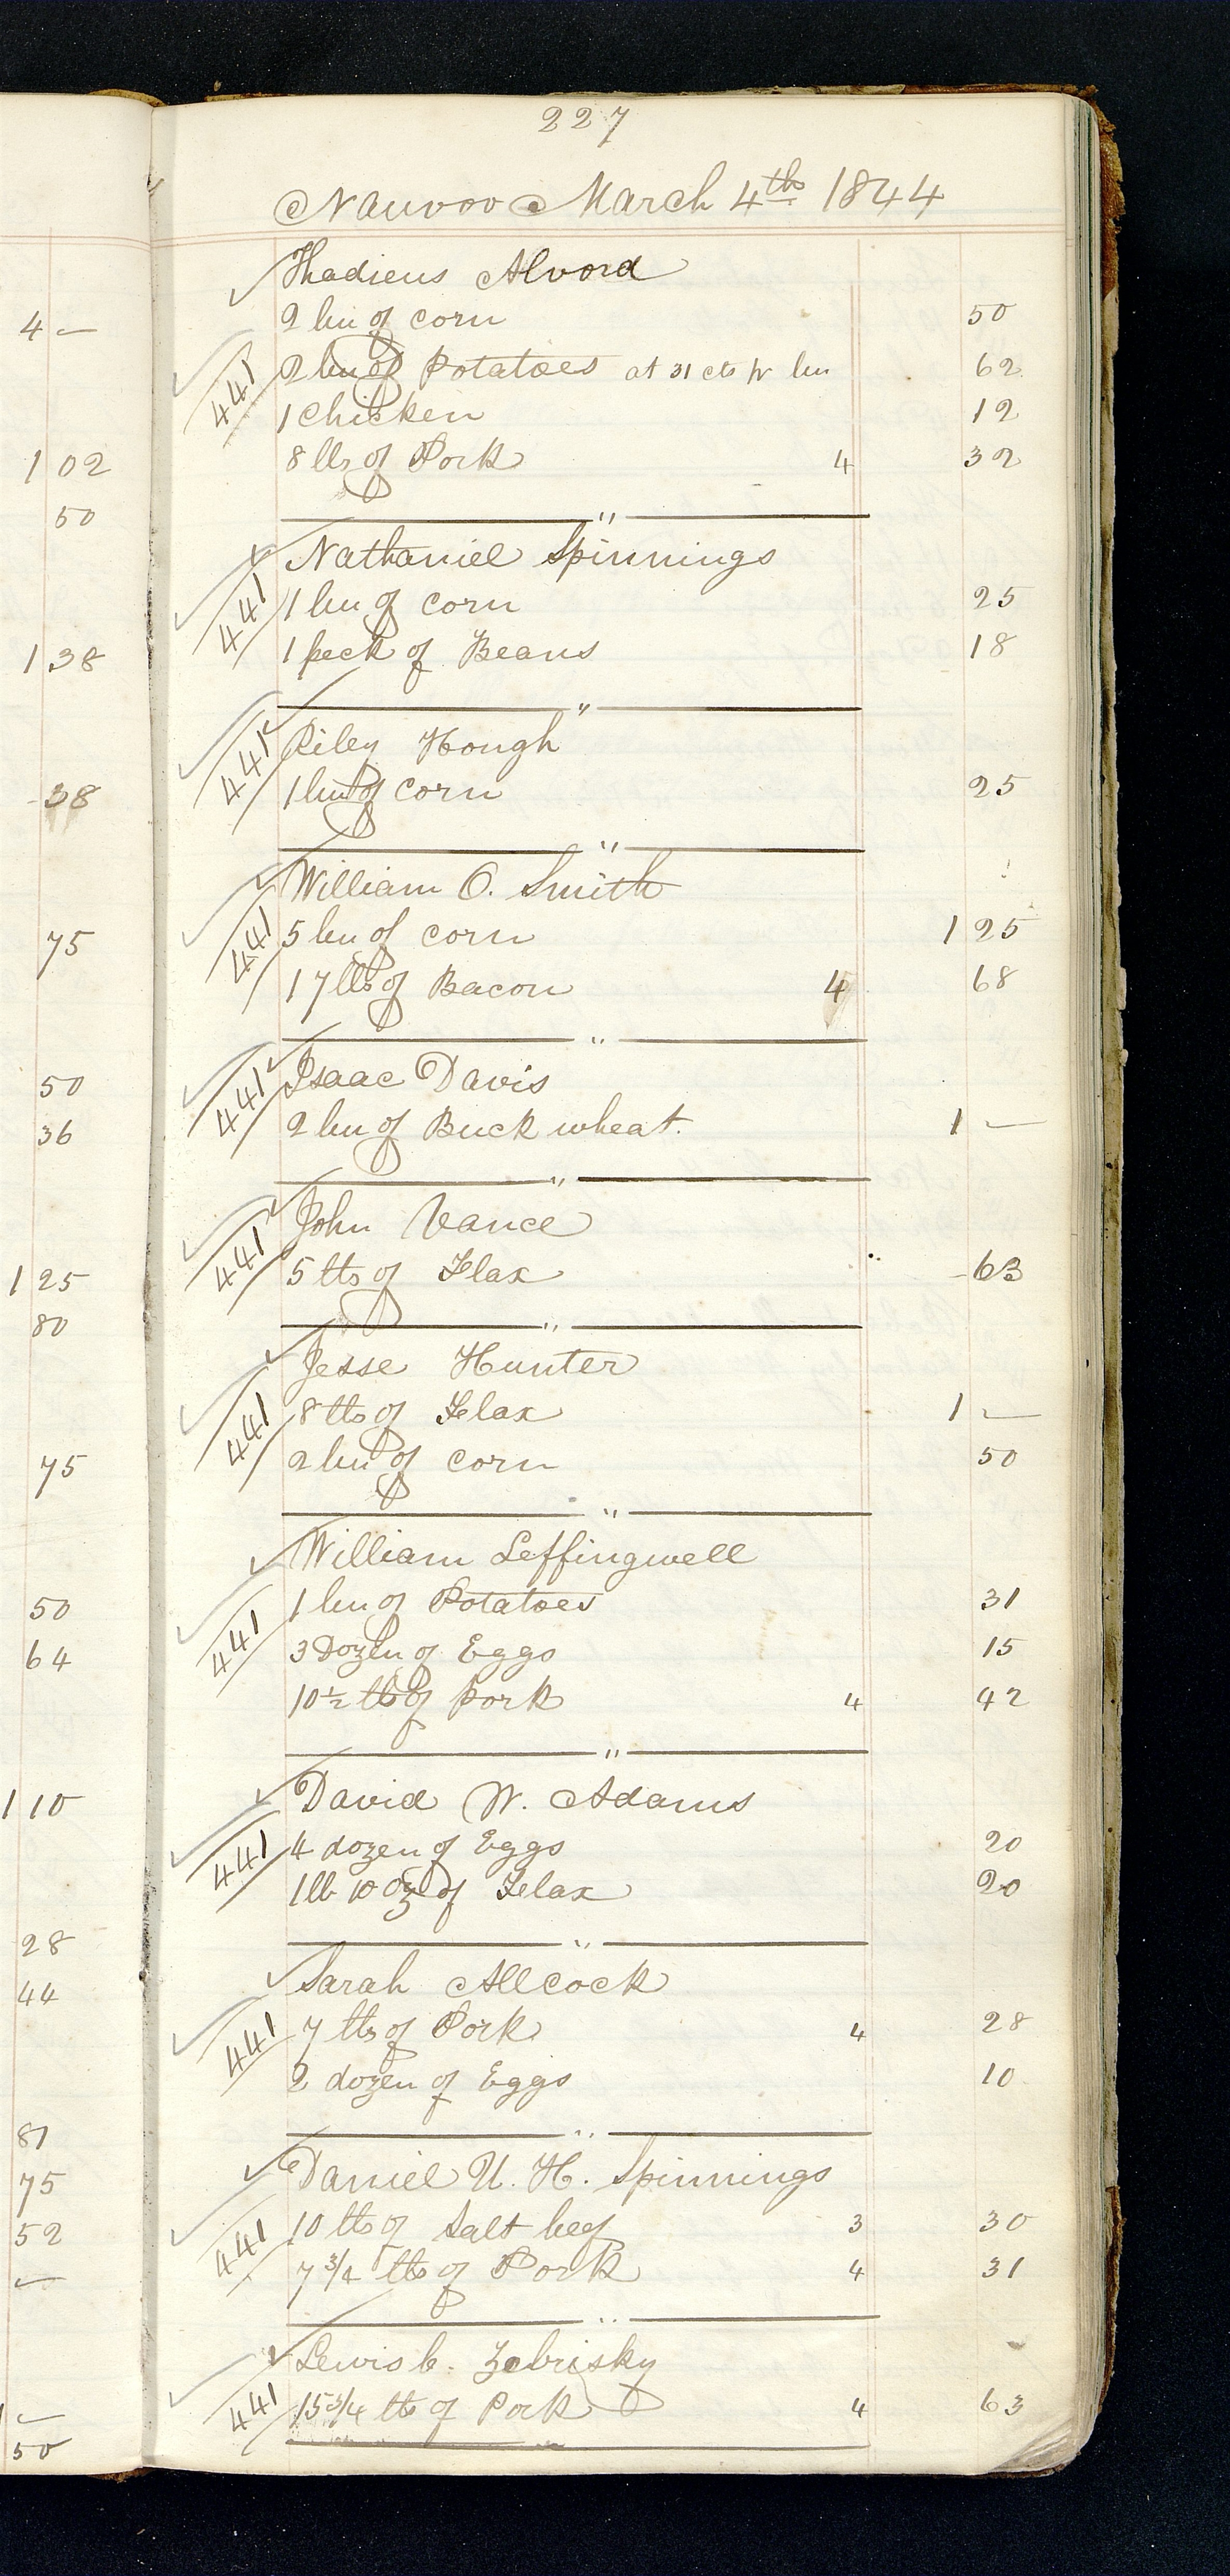 227
Nauvoo March 4th 1844
Thadieus Alvord
2 bu of corn 50
441 2 bu of Potatoes at 31 cts pr bu 62
1 chicken 12
8 lbs of Pork 4 32
"
Nathaniel Spinnings
441 1 bu of corn 25
1 peck of Beans 18
"
Riley Hough
441 1 bu of corn 25
"
William O. Smith
441 5 bu of corn 1 25
17 lbs of Bacon 4 68
"
Isaac Davis
441 2 bu of Buck wheat. 1 —
"
John Vance
441 5 lbs of Flax 63
"
Jesse Hunter
441 8 lbs of Flax 1 —
2 bu of corn 50
"
William Leffingwell
441 1 bu of Potatoes 31
3 Dozen of Eggs 15
10 1/2 lbs of pork 4 42
"
David W. Adams
441 4 dozen of Eggs 20
1 lb 10 oz of Flax 20
"
Sarah Allcock
441 7 lbs of Pork 4 28
2 dozen of Eggs 10
"
Daniel U. H. Spinnings
441 10 lbs of Salt beef 3 30
7 3/4 lbs of Pork 4 31
"
Lewis C. Zebrisky
441 15 3/4 lbs of Pork 4 63
4 —
1 02
50
1 38
38
75
50
36
1 25
80
75
50
64
1 10
28
44
81
75
52
—
1 —
50